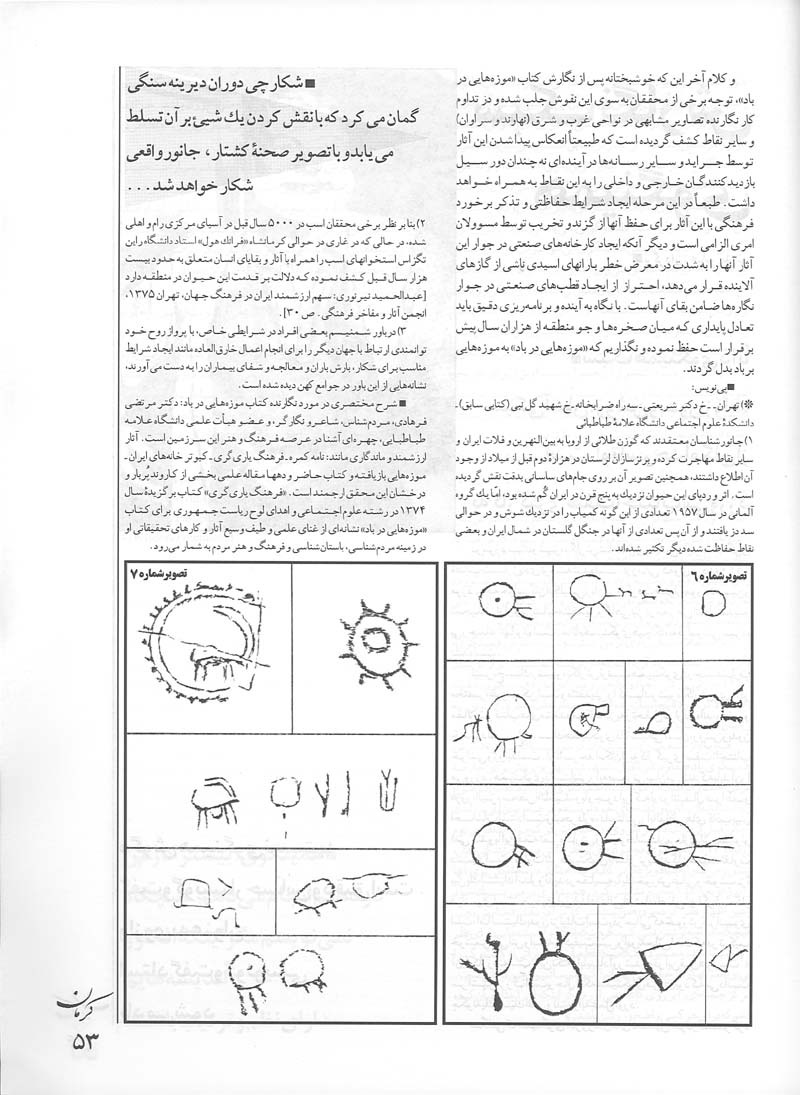 و کلام آخر این که خوشبختانه پس از نگارش کتاب «موزه‌هایی در
باد»، توجه برخی از محققان به سوی این نقوش جلب شده و در تداوم
کار نگارنده تصاویر مشابهی در نواحی غرب و شرق (نهاوند و سراوان)
و سایر نقاط کشف گردیده است که طبیعتاً انعکاس پیدا شدن این آثار
توسط جراید و سایر رسانه‌ها در آینده‌ای نه چندان دور سیل
بازدیدکنندگان خارجی و داخلی را به این نقاط به همراه خواهد
داشت. طبعاً در این مرحله ایجاد شرایط حفاظتی و تذکر برخورد
فرهنگی با این آثار برای حفظ آنها از گزند و تخریب توسط مسوولان
امری الزامی است و دیگر آنکه ایجاد کارخانه‌های صنعتی در جوار این
آثار آنها را به شدت در معرض خطر بارانهای اسیدی ناشی از گازهای
آلاینده قرار می‌دهد، احتراز از ایجاد قطب‌های صنعتی در جوار
نگاره‌ها ضامن بقای آنهاست. با نگاه به آینده و برنامه‌ریزی دقیق باید
تعادل پایداری که میان صخره‌ها و جو منطقه از هزاران سال پیش
برقرار است حفظ نموده و نگذاریم که «موزه‌هایی در باد» به موزه‌هایی
بر باد بدل گردند.
■پی‌نویس:
❊) تهران ـ خ دکتر شریعتی ـ سه راه ضرابخانه ـ خ شهید گل نبی (کتابی سابق) ـ
دانشکدهٔ علوم اجتماعی دانشگاه علامهٔ طباطبائی
۱) جانورشناسان معتقدند که گوزن طلائی از اروپا به بین‌النهرین و فلات ایران و
سایر نقاط مهاجرت کرده و برنزسازان لرستان در هزارهٔ دوم قبل از میلاد از وجود
آن اطلاع داشتند، همچنین تصویر آن بر روی جام‌های ساسانی بدقت نقش گردیده
است. اثر و ردپای این حیوان نزدیك به پنج قرن در ایران گم شده بود، امّا یك گروه
آلمانی در سال ۱۹۵۷ تعدادی از این گونه کمیاب را در نزدیك شوش و در حوالی
سد دز یافتند و از آن پس تعدادی از آنها در جنگل گلستان در شمال ایران و بعضی
نقاط حفاظت شده دیگر تکثیر شده‌اند.
■ شکارچی دوران دیرینه سنگی
گمان می کرد که با نقش کردن یك شیئ بر آن تسلط
می یابد و با تصویر صحنهٔ کشتار، جانور واقعی
شکار خواهد شد...
۲) بنا بر نظر برخی محققان اسب در ۵۰۰۰ سال قبل در آسیای مرکزی رام و اهلی
شده، در حالی که در غاری در حوالی کرمانشاه «فرانك هول» استاد دانشگاه راین
تگزاس استخوانهای اسب را همراه با آثار و بقایای انسان متعلق به حدود بیست
هزار سال قبل کشف نموده که دلالت بر قدمت این حیوان در منطقه دارد
[عبدالحمید نیرنوری: سهم ارزشمند ایران در فرهنگ جهان، تهران ۱۳۷۵،
انجمن آثار و مفاخر فرهنگی. ص ۳۰].
۳) در باور شمنیسم بعضی افراد در شرایطی خاص، با پرواز روح خود
توانمندی ارتباط با جهان دیگر را برای انجام اعمال خارق‌العاده مانند ایجاد شرایط
مناسب برای شکار، بارش باران و معالجه و شفای بیماران را به دست می‌آورند،
نشانه‌هایی از این باور در جوامع کهن دیده شده است.
■ شرح مختصری در مورد نگارنده کتاب موزه‌هایی در باد: دکتر مرتضی
فرهادی، مردم‌شناس، شاعر و نگارگر، و عضو هیأت علمی دانشگاه علامه
طباطبایی، چهره‌ای آشنا در عرصه فرهنگ و هنر این سرزمین است. آثار
ارزشمند و ماندگاری مانند: نامه کمره ـ فرهنگ یاری گری ـ کبوترخانه‌های ایران ـ
موزه‌هایی بازیافته و کتاب حاضر و دهها مقاله علمی بخشی از کاروند پُربار و
درخشان این محقق ارجمند است. «فرهنگ یاری گری» کتاب برگزیدهٔ سال
۱۳۷۴ در رشته علوم اجتماعی و اهدای لوح ریاست جمهوری برای کتاب
«موزه‌هایی در باد» نشانه‌ای از غنای علمی و طیف وسیع آثار و کارهای تحقیقاتی او
در زمینه مردم‌شناسی، باستان‌شناسی و فرهنگ و هنر مردم به شمار می‌رود.
تصویر شماره ۶
تصویر شماره ۷
کرمان
۵۳